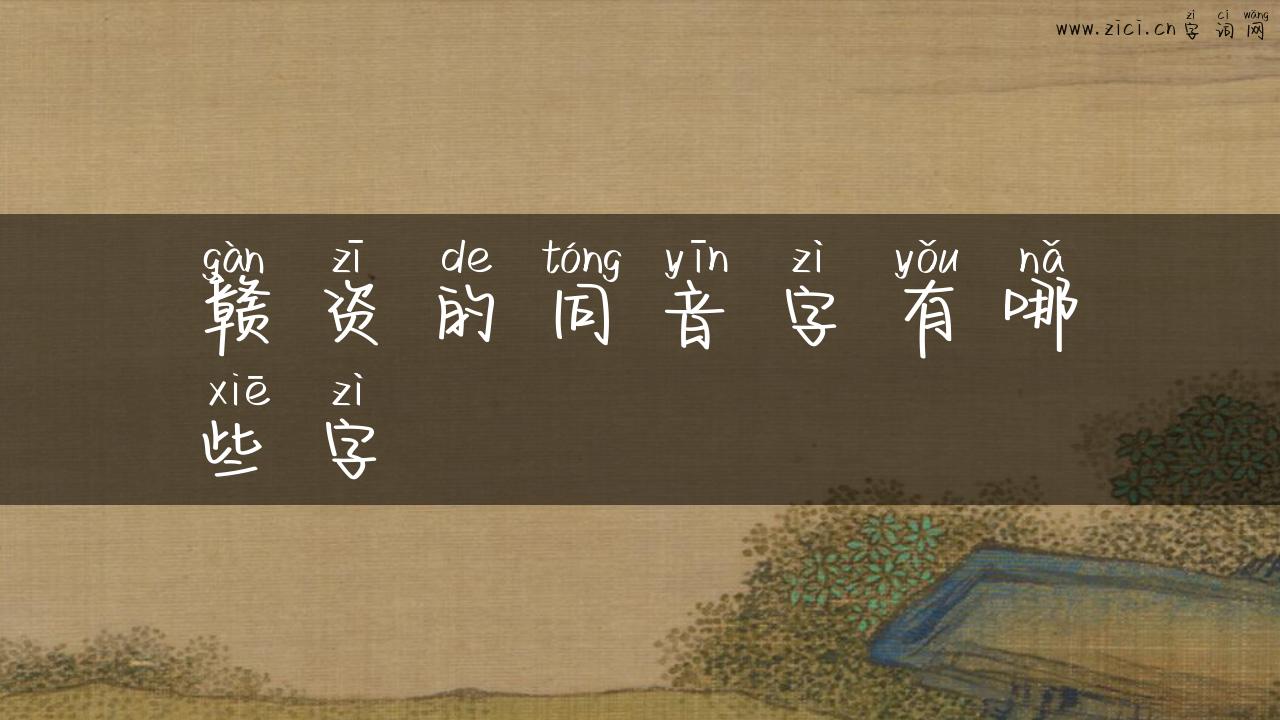 zì cí wǎng
www.zici.cn 字 词 网
gàn zī de tóng yīn zì yǒu nǎ
赣 资 的 同 音 字 有 哪
xiē zì
些 字